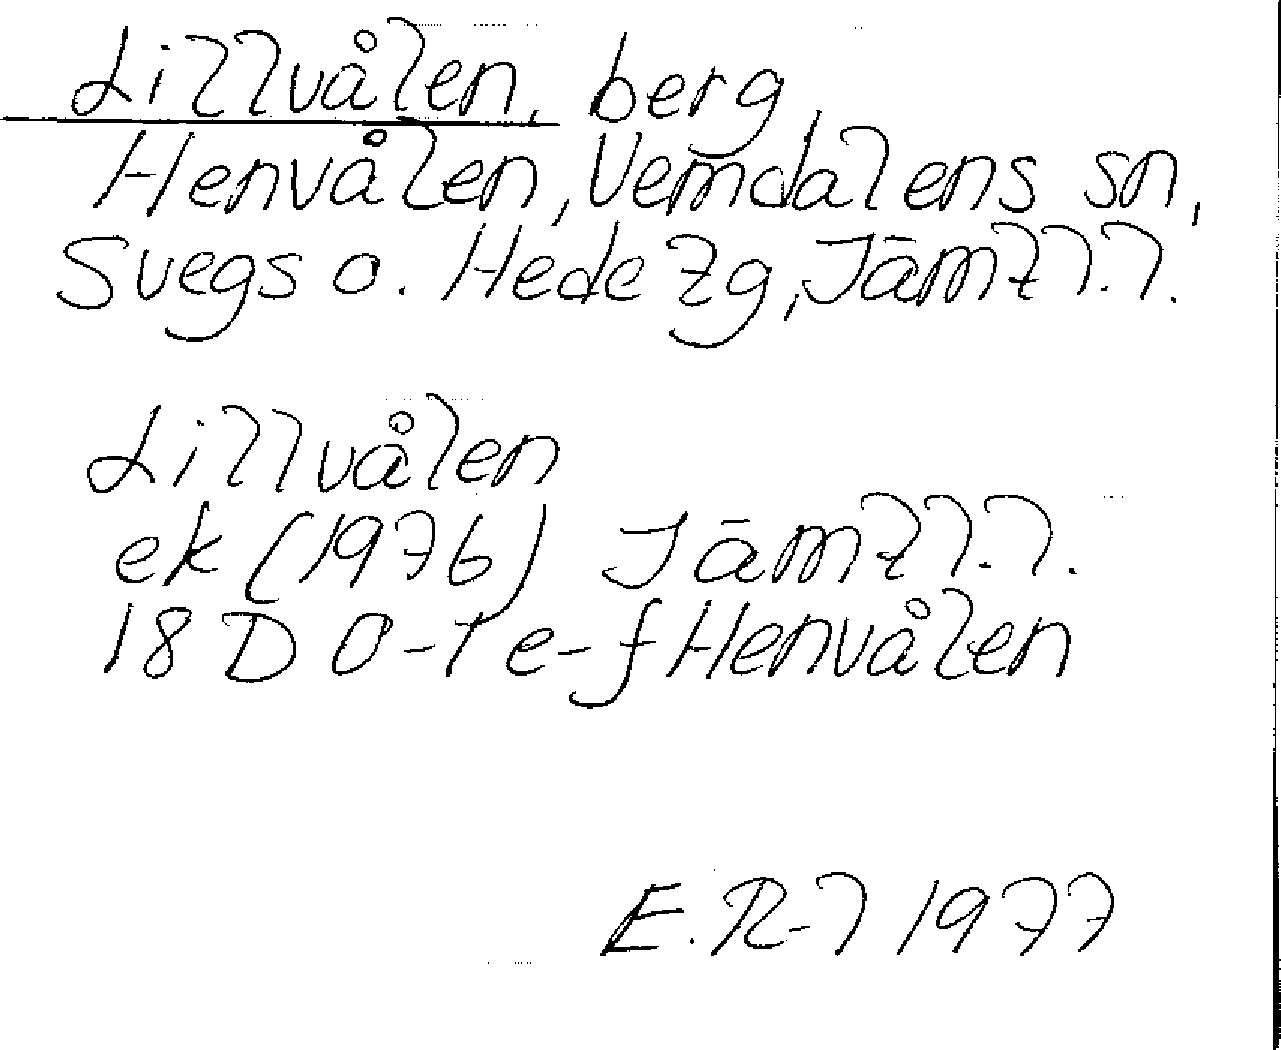 Lillvålen, berg
Henvålen, Vemdalens sn,
Svegs o. Hede tg, Jämtl.l.
Lillvålen
ek (1976) Jämtl.l.
18D 0-1 e-f Henvålen
E.R-l 1977